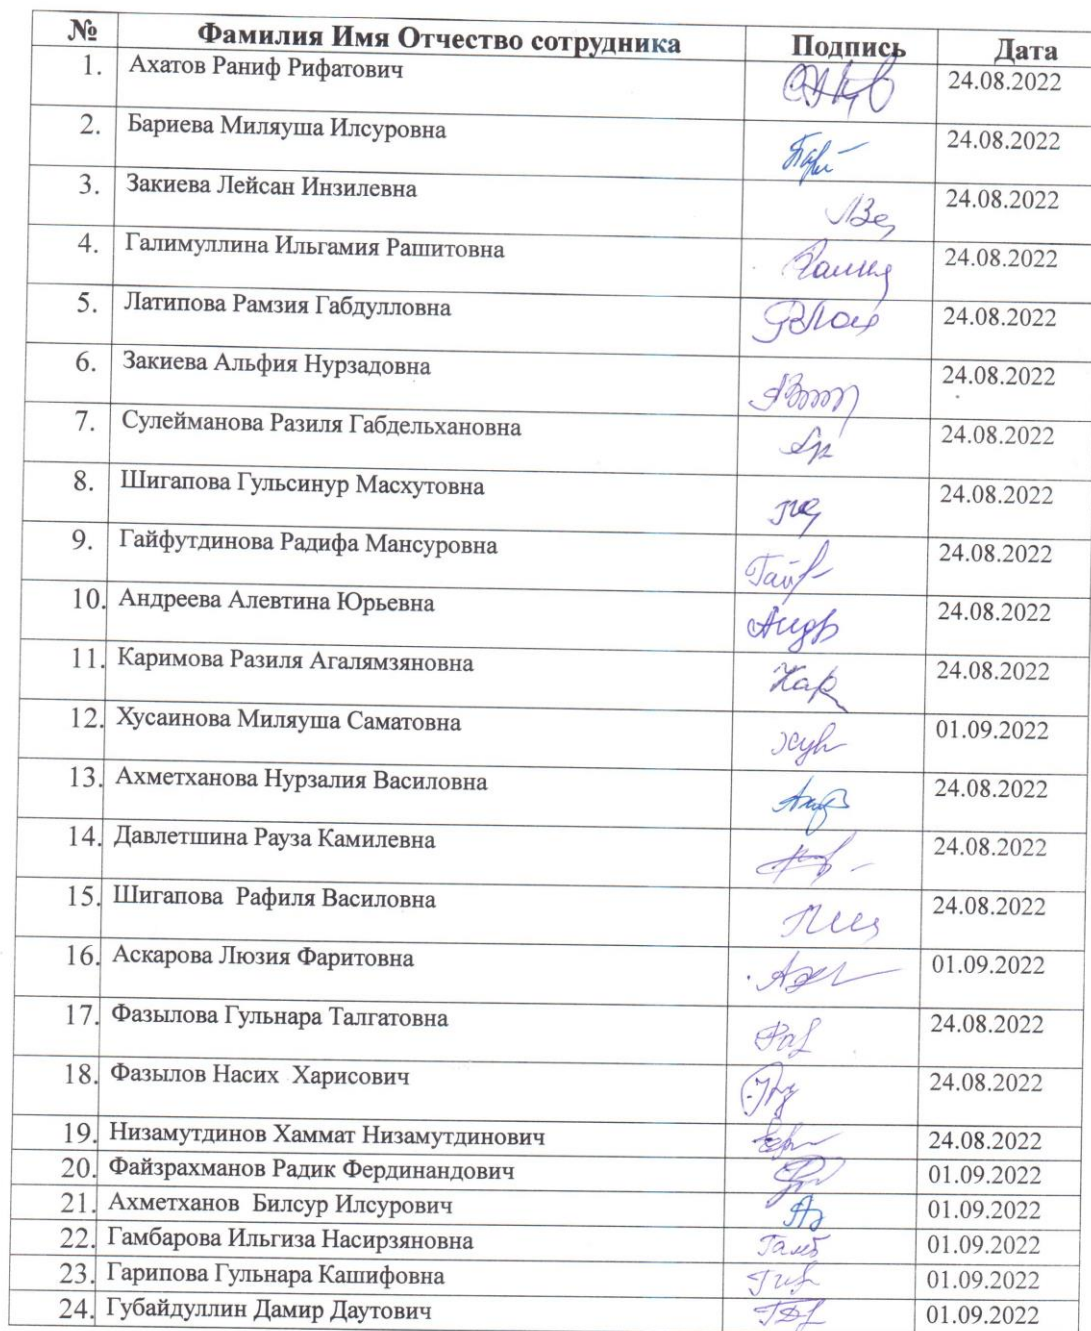 № Фамилия Имя Отчество сотрудника Подпись Дата
1. Ахатов Раниф Рифатович 24.08.2022
2. Бариева Миляуша Илсуровна 24.08.2022
3. Закиева Лейсан Инзилевна 24.08.2022
4. Галимуллина Ильгамия Рашитовна 24.08.2022
5. Латипова Рамзия Габдулловна 24.08.2022
6. Закиева Альфия Нурзадовна 24.08.2022
7. Сулейманова Разиля Габдельхановна 24.08.2022
8. Шигапова Гульсинур Масхутовна 24.08.2022
9. Гайфутдинова Радифа Мансуровна 24.08.2022
10. Андреева Алевтина Юрьевна 24.08.2022
11. Каримова Разиля Агалямзяновна 24.08.2022
12. Хусаинова Миляуша Саматовна 01.09.2022
13. Ахметханова Нурзалия Василовна 24.08.2022
14. Давлетшина Рауза Камилевна 24.08.2022
15. Шигапова Рафиля Василовна 24.08.2022
16. Аскарова Люзия Фаритовна 01.09.2022
17. Фазылова Гульнара Талгатовна 24.08.2022
18. Фазылов Насих Харисович 24.08.2022
19. Низамутдинов Хаммат Низамутдинович 24.08.2022
20. Файзрахманов Радик Фердинандович 01.09.2022
21. Ахметханов Билсур Илсурович 01.09.2022
22. Гамбарова Ильгиза Насирзяновна 01.09.2022
23. Гарипова Гульнара Кашифовна 01.09.2022
24. Губайдуллин Дамир Даутович 01.09.2022